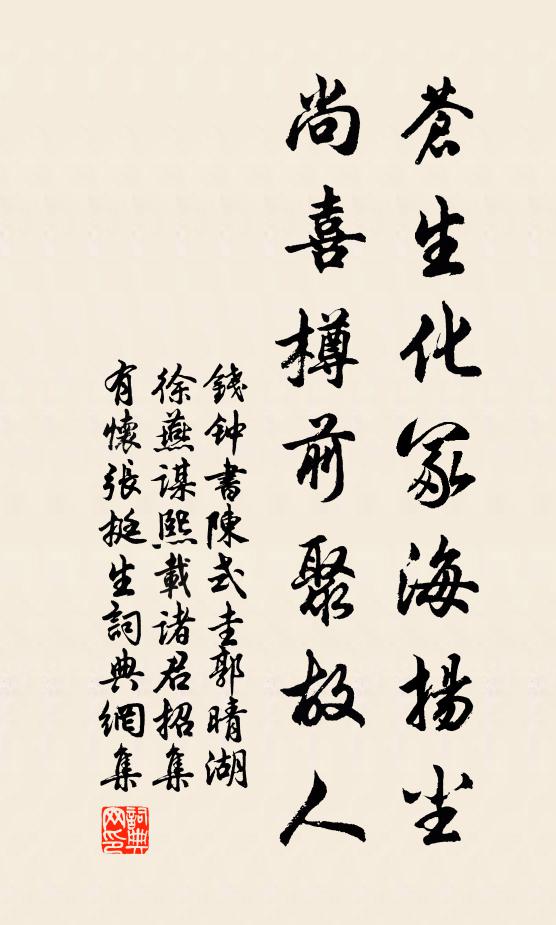 蒼生化冢海揚尘
尚喜樽前聚故人
錢钟書陳式圭郭晴湖
徐燕谋熙載诸君招集
有懷張挺生詞典網集
詞典网印